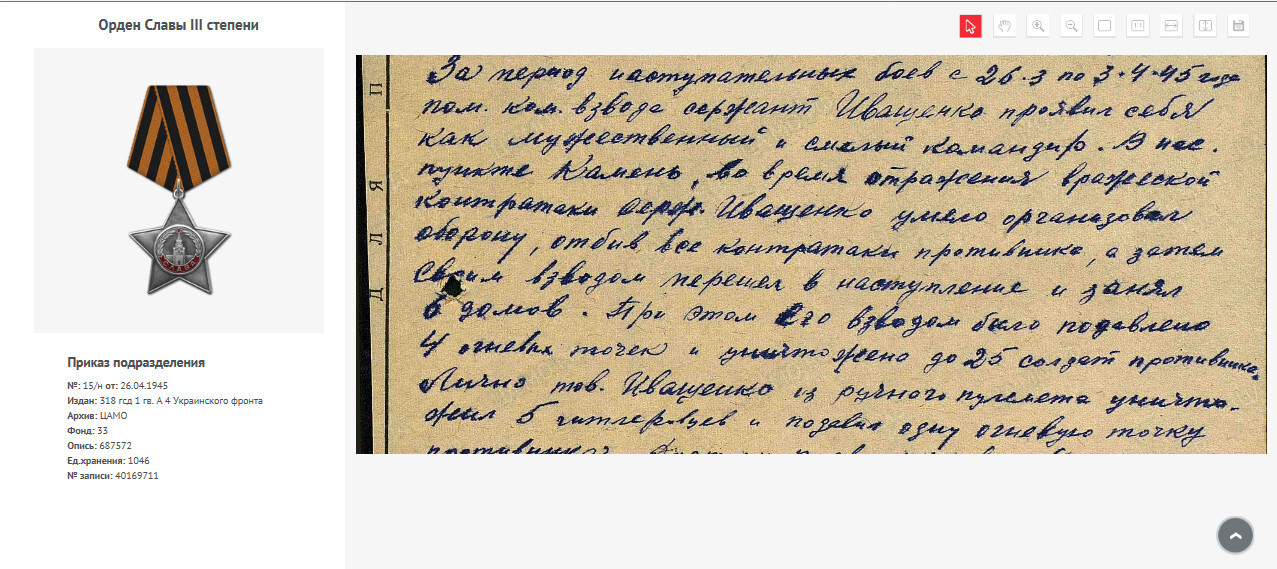 Орден Славы III степени
СЛАВА
Приказ подразделения
№: 15/н от: 26.04.1945
Издан: 318 гсд 1 гв. А 4 Украинского фронта
Архив: ЦАМО
Фонд: 33
Опись: 687572
Ед.хранения: 1046
№ записи: 40169711
1:1
П
Я
Л
Д
За период наступательных боев с 26.3 по 3.4.45 года
пом. ком. взвода сержант Иващенко проявил себя
как мужественный и смелый командир. В нас.
пункте Камень, во время отражения вражеской
контратаки серж. Иващенко умело организовал
оборону, отбив все контратаки противника, а затем
своим взводом перешел в наступление и занял
6 домов. При этом его взводом было подавлено
4 огневых точек и уничтожено до 25 солдат противника.
Лично тов. Иващенко из ручного пулемета уничто-
жил 5 гитлеровцев и подавил одну огневую точку
противника.